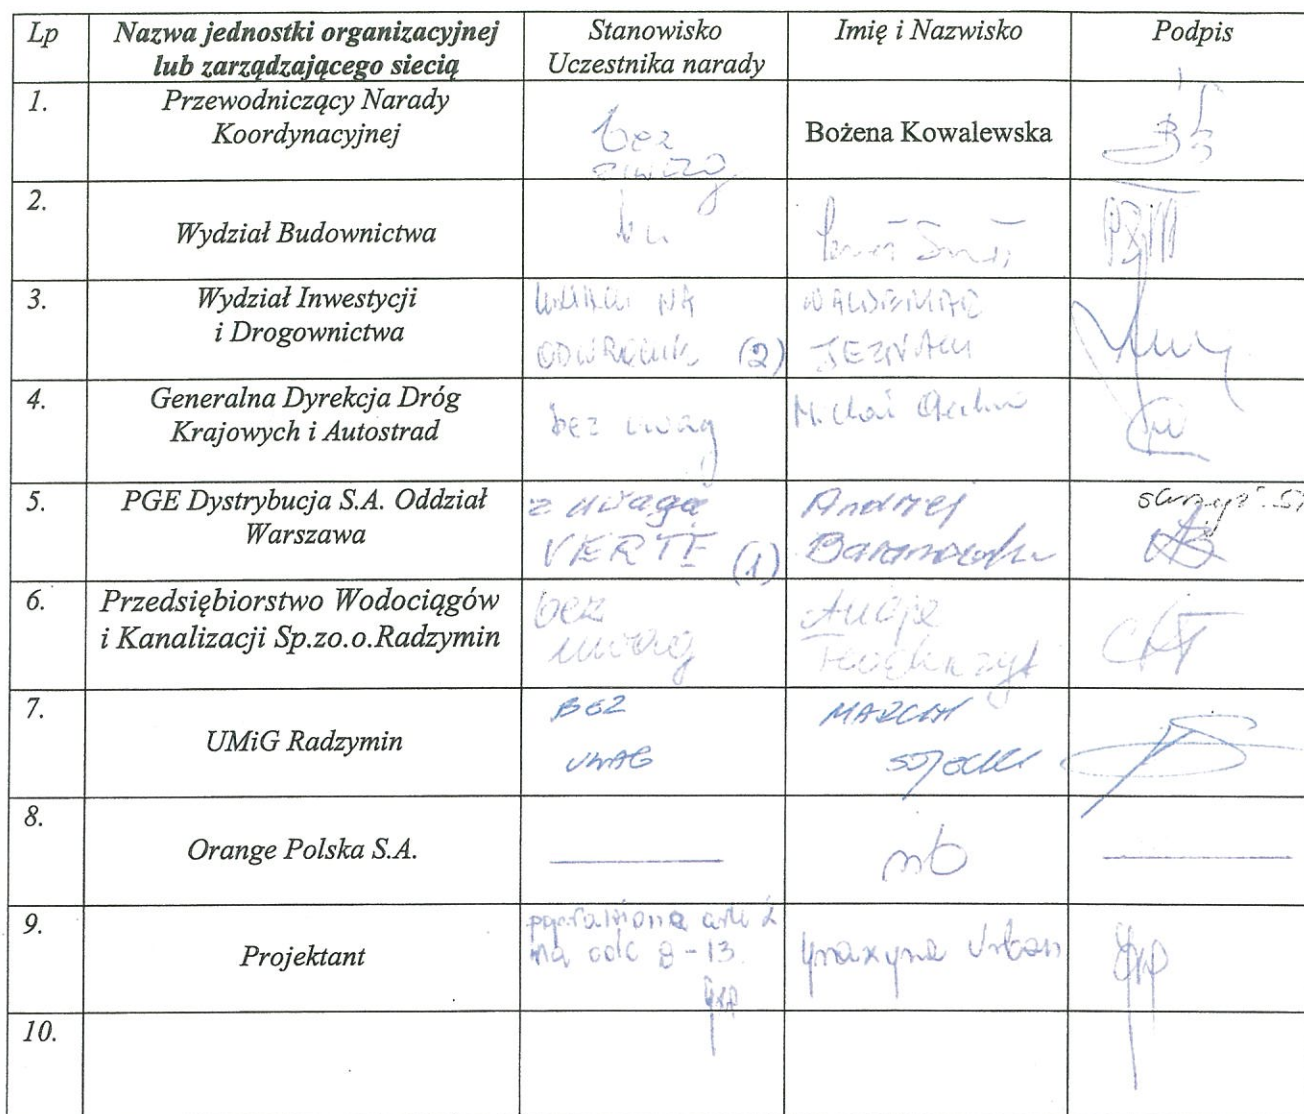 Lp
Nazwa jednostki organizacyjnej
lub zarządzającego siecią
Stanowisko
Uczestnika narady
Imię i Nazwisko
Podpis
1.
Przewodniczący Narady
Koordynacyjnej
bez
Bożena Kowalewska
2.
Wydział Budownictwa
3.
Wydział Inwestycji
i Drogownictwa
NA
(2)
WALDEMAR
4.
Generalna Dyrekcja Dróg
Krajowych i Autostrad
bez uwag
5.
PGE Dystrybucja S.A. Oddział
Warszawa
z uwagą
VERTE (1)
Andrzej
6.
Przedsiębiorstwo Wodociągów
i Kanalizacji Sp.zo.o.Radzymin
bez
uwag
7.
UMiG Radzymin
BEZ
UWAG
MARCIN
8.
Orange Polska S.A.
nb
9.
Projektant
na odc 8-13.
Grażyna Urban
10.